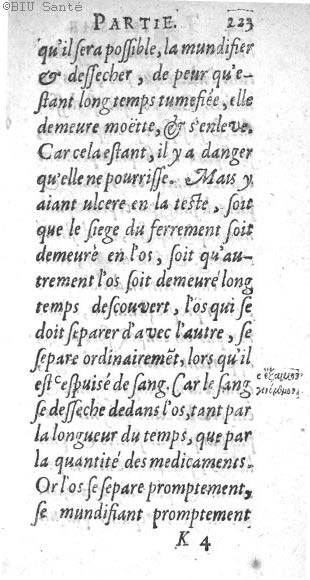 ©BIU Santé
PARTIE. 223
qu'il sera poſſible, la mundifier
& deſſecher, de peur qu'e-
ſtant long temps tumefiée, elle
demeure moëtte, & s'enleve.
Car cela eſtant, il y a danger
qu'elle ne pourriſſe. Mais y
aiant ulcere en la teſte, ſoit
que le ſiege du ferrement ſoit
demeuré en l'os, ſoit qu'au-
trement l'os ſoit demeuré long
temps deſcouvert, l'os qui ſe
doit ſeparer d'avec l'autre, ſe
ſepare ordinairemẽt, lors qu'il
eſt ᶜeſpuisé de ſang. Car le ſang
ſe deſſeche dedans l'os, tant par
la longueur du temps, que par
la quantité des medicaments.
Or l'os ſe ſepare promptement,
ſe mundifiant promptement
K 4